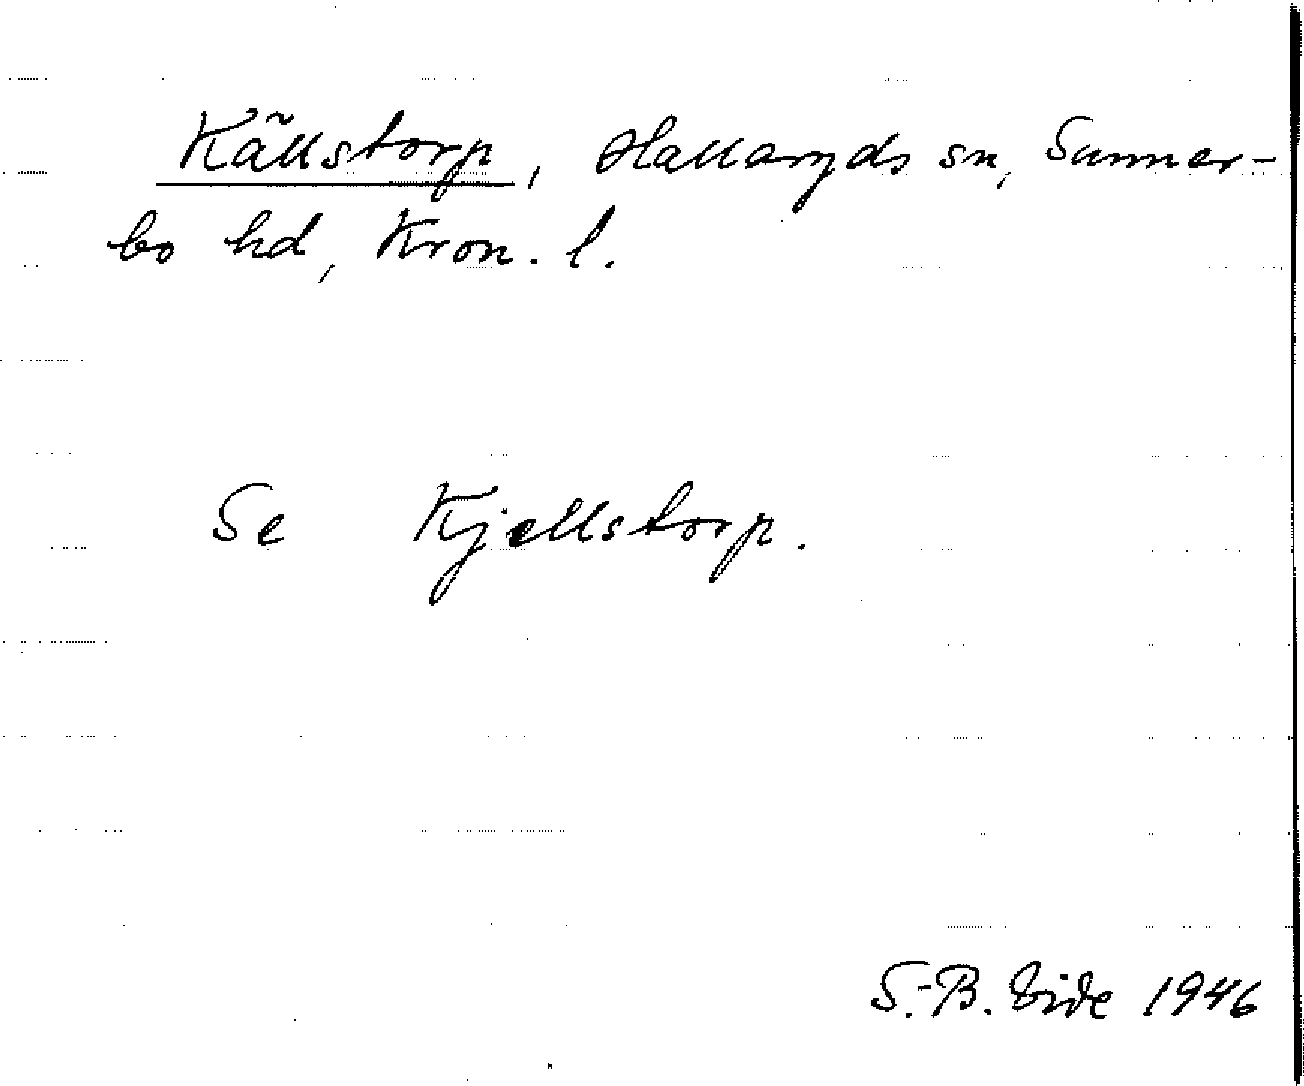 Källstorp, Hallaryds sn, Sunner-
bo hd, Kron. l.
Se Kjellstorp.
S.-B. Vide 1946